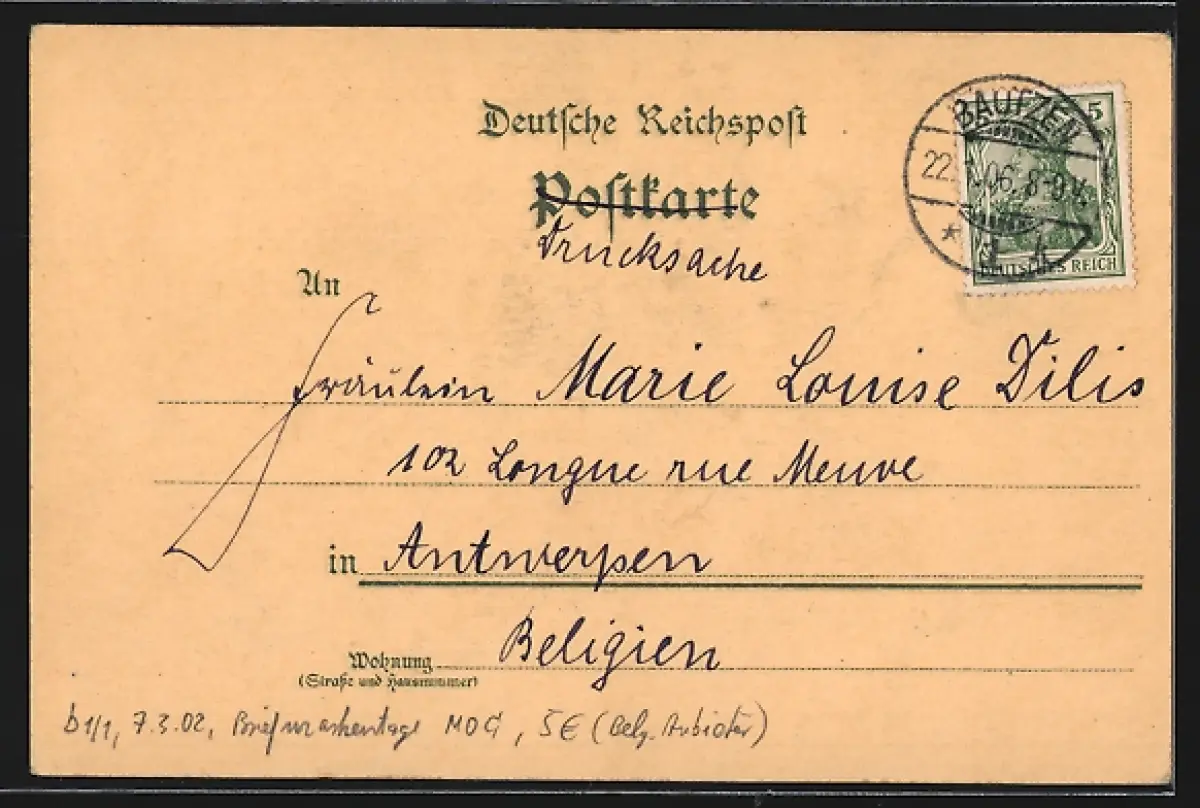 Deutsche Reichspost
Postkarte
Drucksache
BAUTZEN
22. .06. 8-9 V.
5
DEUTSCHES REICH
An
Fräulein Marie Louise Dilis
102 Longue rue Neuve
in Antwerpen
Beligien
Wohnung
(Straße und Hausnummer)
b 1/1, 7.3.02, Briefmarkentage 5€ (Belg. Anbieter)